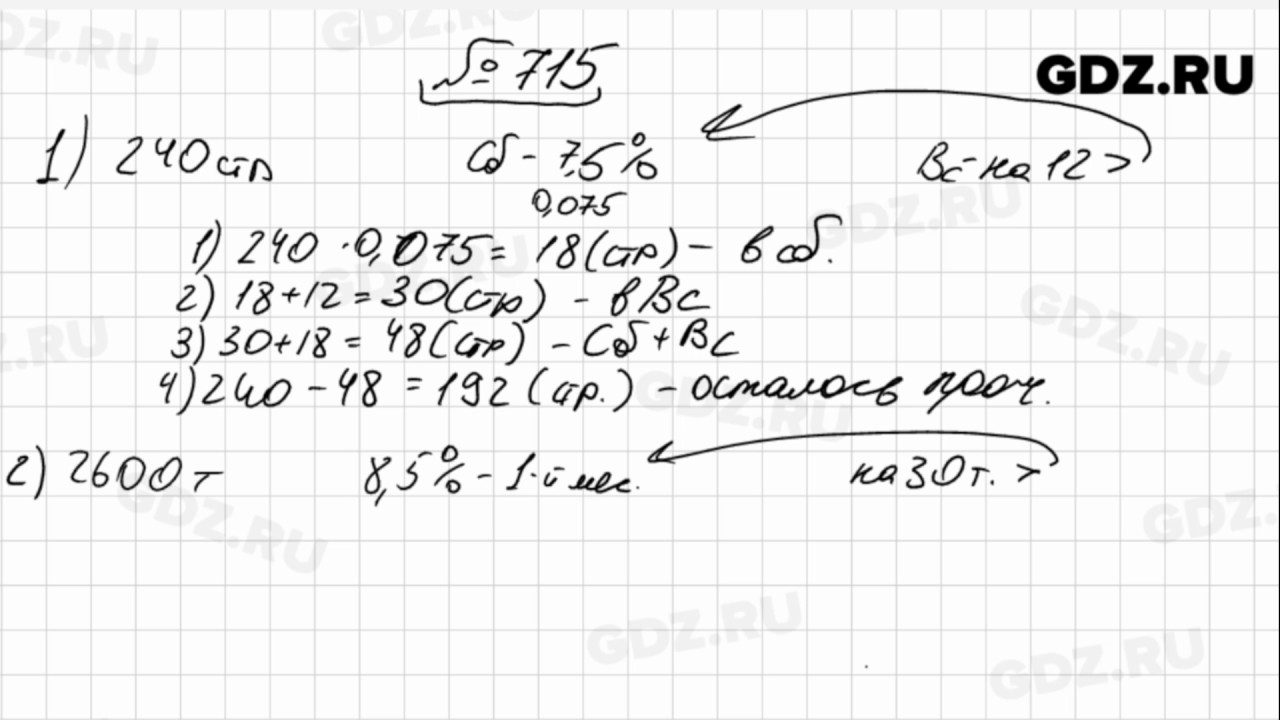 № 715
GDZ.RU
1) 240 стр Сб - 7,5% Вс - на 12 >
0,075
1) 240 · 0,075 = 18 (стр) - в сб.
2) 18 + 12 = 30 (стр) - в Вс
3) 30 + 18 = 48 (стр) - Сб + Вс
4) 240 - 48 = 192 (стр.) - осталось проч.
2) 2600 т 8,5% - 1-й мес. на 30 т. >